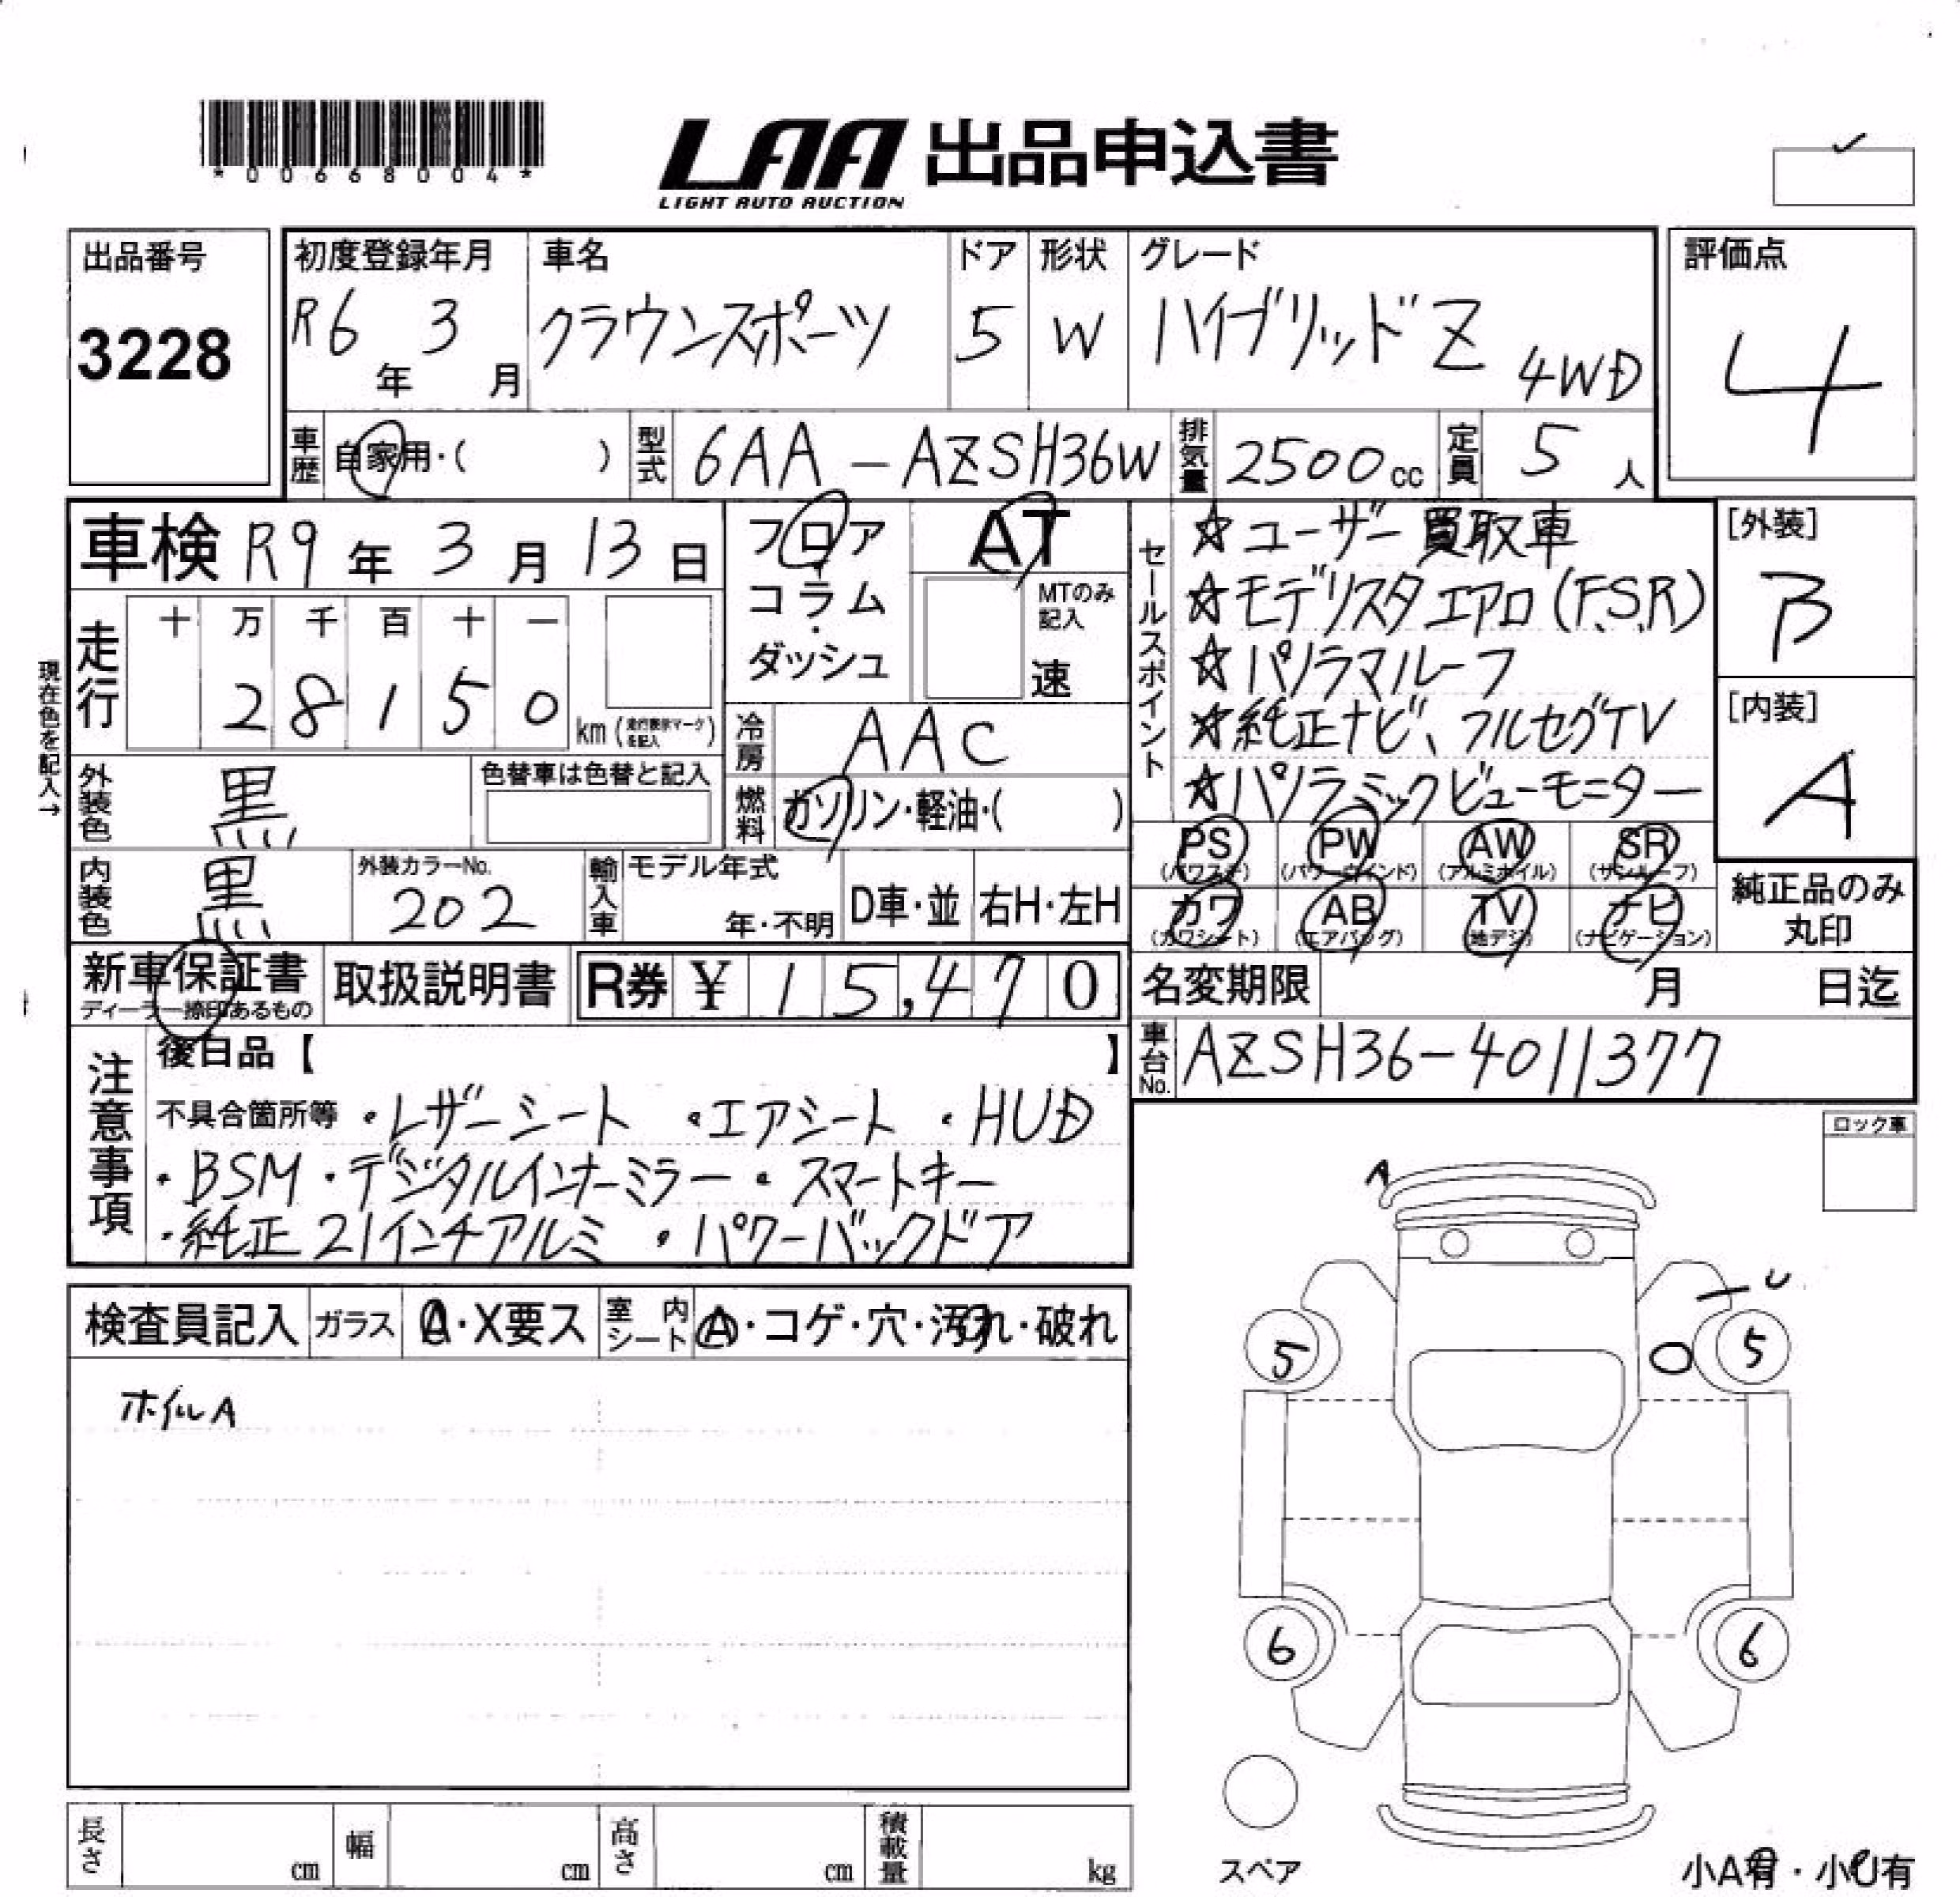 *00668004*
LAA 出品申込書
LIGHT AUTO AUCTION
出品番号
3228
初度登録年月
R6年 3月
車名
クラウンスポーツ
ドア
5
形状
W
グレード
ハイブリッドZ 4WD
評価点
4
車歴 自家用・( )
型式 6AA-AZSH36W
排気量 2500cc
定員 5人
車検 R9年 3月 13日
フロア
コラム・
ダッシュ
AT
MTのみ記入
速
走行 十 万 千 百 十 一
28150 km (走行表示マークを記入)
現在色を記入→
冷房 AAC
外装色 黒
色替車は色替と記入
燃料 ガソリン・軽油・( )
内装色 黒
外装カラーNo.
202
輸入車 モデル年式
年・不明
D車・並
右H・左H
セールスポイント
☆ユーザー買取車
☆モデリスタエアロ(F.S.R)
☆パノラマルーフ
☆純正ナビ、フルセグTV
☆パノラミックビューモニター
[外装]
B
[内装]
A
PS (パワステ)
PW (パワーウインド)
AW (アルミホイル)
SR (サンルーフ)
カワ (カワシート)
AB (エアバッグ)
TV (地デジ)
ナビ (ナビゲーション)
純正品のみ丸印
新車保証書
ディーラー捺印あるもの
取扱説明書
R券 ¥ 15,470
名変期限 月 日迄
車台No. AZSH36-4011377
注意事項
後日品【 】
不具合箇所等 ・レザーシート ・エアシート ・HUD
・BSM ・デジタルインナーミラー ・スマートキー
・純正21インチアルミ ・パワーバックドア
ロック車
検査員記入 ガラス A・X要ス 室内シート A・コゲ・穴・汚れ・破れ
ホイルA
A
U
5
5
6
6
スペア
小A有・小U有
長さ cm
幅 cm
高さ cm
積載量 kg